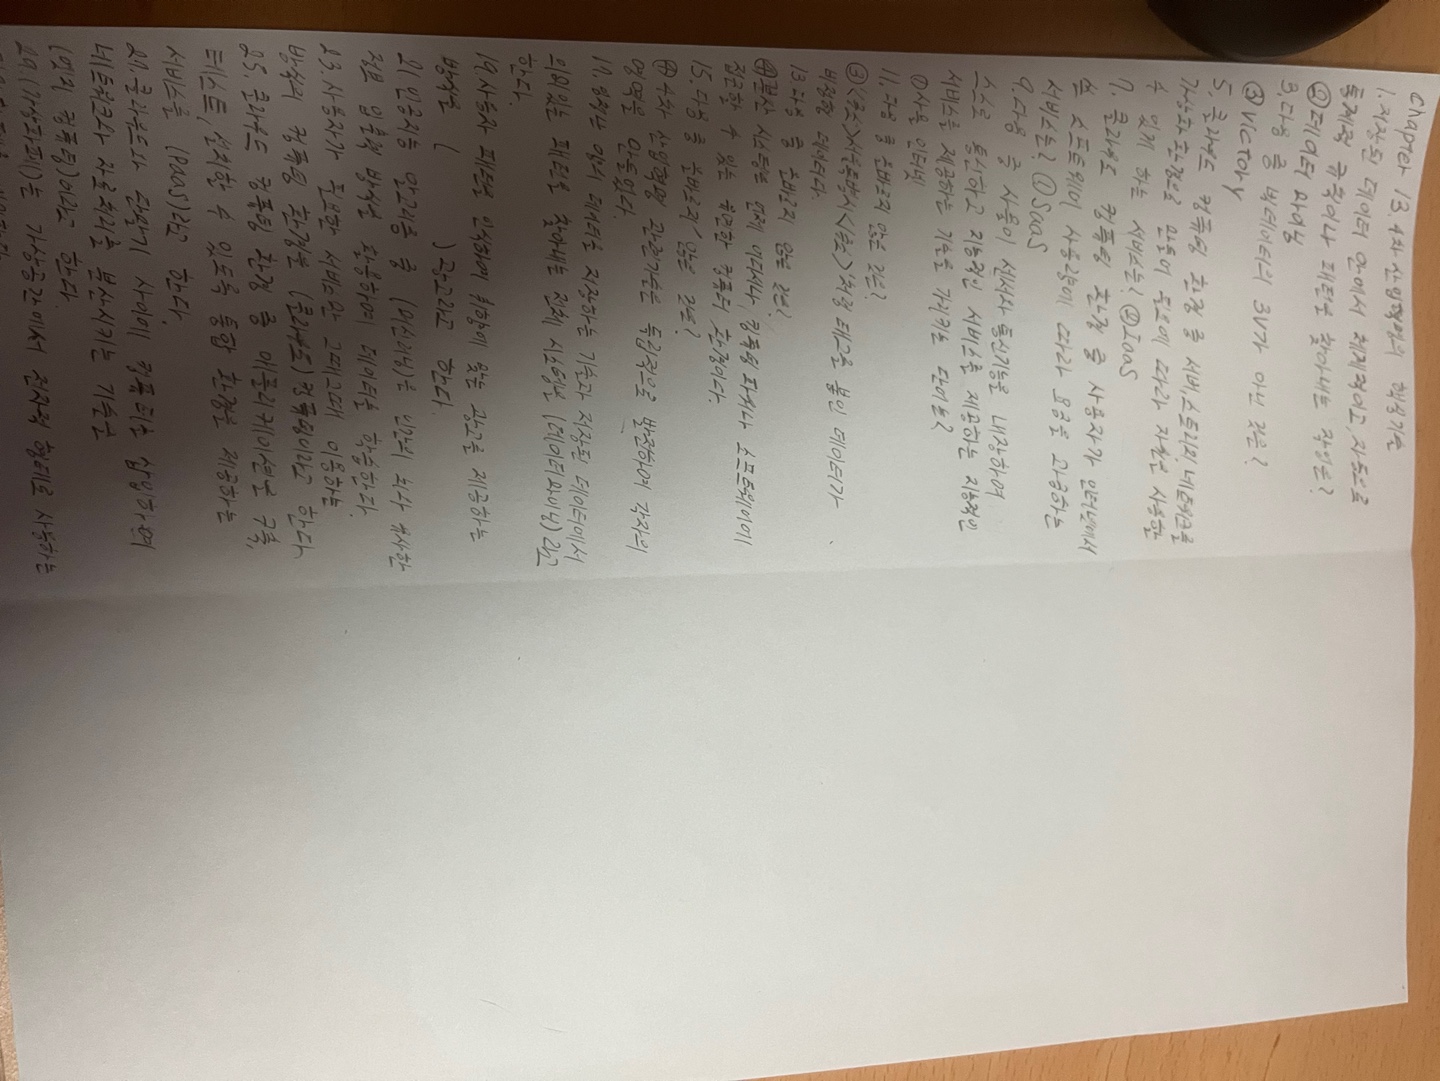 Chapter 13. 4차 산업혁명의 핵심기술
1. 저장된 데이터 안에서 체계적이고 자동으로
통계적 규칙이나 패턴을 찾아내는 작업은?
④데이터 마이닝
3. 다음 중 빅데이터의 3V가 아닌 것은?
③ Victory
5. 클라우드 컴퓨팅 환경 중 서버, 스토리지, 네트워크를
가상화 환경으로 만들어 필요에 따라 자원을 사용할
수 있게 하는 서비스는? ②IaaS
7. 클라우드 컴퓨팅 환경 중 사용자가 인터넷에서
소프트웨어 사용량에 따라 요금을 과금하는
서비스는? ①SaaS
9. 다음 중 사물이 센서와 통신기능을 내장하여
스스로 통신하고 지능적인 서비스를 제공하는 지능적인
서비스를 제공하는 기술을 가리키는 단어는?
①사물 인터넷
11. 다음 중 올바르지 않은 것은?
데이터다.
13. 다음 중 올바르지 않은 것은?
④분산 시스템은 언제 어디서나 컴퓨터
접근할 수 있는 유연한 컴퓨터 환경이다.
15. 다음 중 올바르지 않은 것은?
④ 4차 산업혁명 관련기술은 독립적으로 발전하여 각자의
영역을 만들었다.
17. 데이터를 저장하는 기술과 저장된 데이터에서
의미있는 패턴을 찾아내는 전체 시스템을 (데이터마이닝)라고
한다.
19. 사용자 패턴을 인식하여 취향에 맞는 광고를 제공하는
방식을 ( ) 광고라고 한다.
21. 인공지능 알고리즘 중 (머신러닝)은 인간의 뇌와 유사한
정보 입출력 방식을 활용하여 데이터를 학습한다.
23. 사용자가 필요한 서비스만 그때그때 이용하는
방식의 컴퓨팅 환경을 (클라우드) 컴퓨팅이라고 한다.
25. 클라우드 컴퓨팅 환경 중 애플리케이션을 구축,
테스트, 설치할 수 있도록 통합 환경을 제공하는
서비스를 (PaaS)라고 한다.
27. 클라우드와 단말기 사이에 컴퓨터를 삽입하여
네트워크나 사용처리를 분산시키는 기술을
(엣지 컴퓨팅)이라고 한다.
29. (가상화폐)는 가상공간에서 전자적 형태로 사용하는